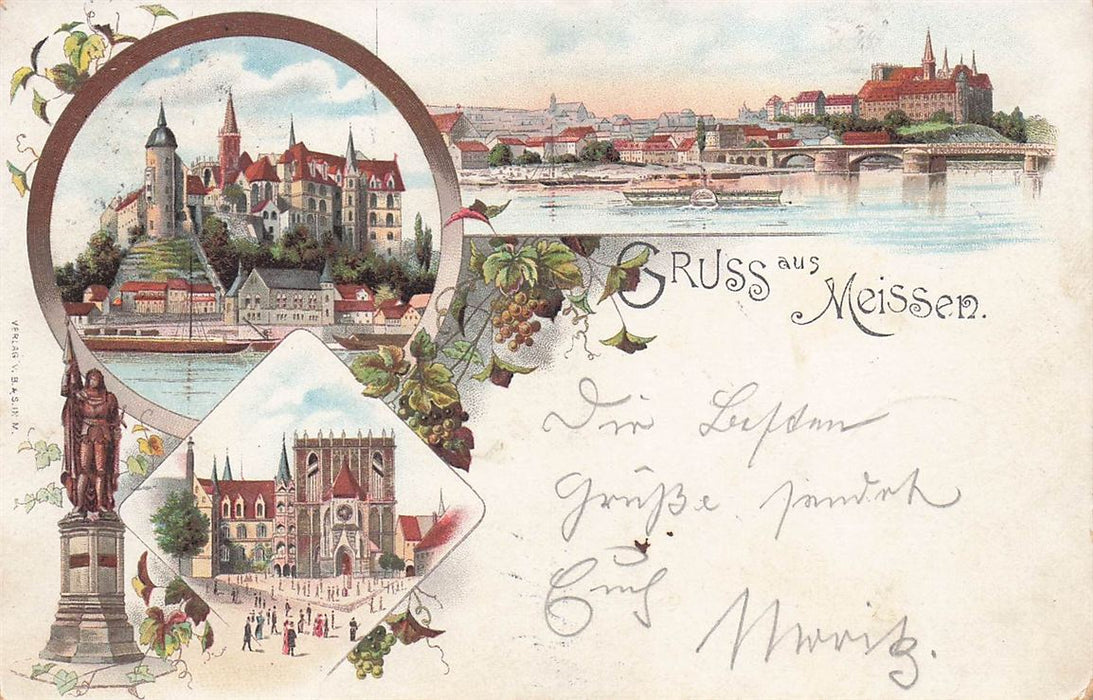 GRUSS aus
Meissen.
Die Besten
Grüße sendet
Euch
Moritz.
VERLAG V. B. & S. IN M.